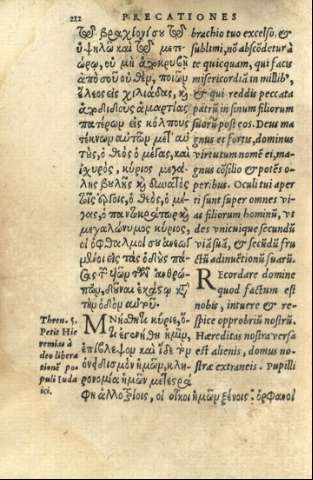 212 PRECATIONES
τῷ βραχίονί σου τῷ
ὑψηλῷ καὶ τῷ μετεώρῳ,
οὐ μὴ ἀποκρυβῇ
ἀπὸ σοῦ οὐθέν, ποιῶν
ἔλεος εἰς χιλιάδας, καὶ
ἀποδιδοὺς ἁμαρτίας
πατέρων εἰς κόλπους
τέκνων αὐτῶν μετ' αὐτούς,
ὁ θεὸς ὁ μέγας, καὶ
ἰσχυρὸς, κύριος
βουλῆς καὶ δυνατὸς
τοῖς ἔργοις, ὁ θεὸς, ὁ μέγας,
ὁ παντοκράτωρ καὶ
μεγαλώνυμος κύριος,
οἱ ὀφθαλμοί σου
εἰς τὰς ὁδοὺς
τῶν υἱῶν τῶν ἀνθρώπων,
δοῦναι ἑκάστῳ κατὰ
τὴν ὁδὸν αὐτοῦ.
Μνήθητι κύριε, ὅ,
τι ἐγενήθη ἡμῖν,
ἐπίβλεψον καὶ ἴδε τὸν
ὀνειδισμὸν ἡμῶν, κληρονομία
ἡμῶν μετεστράφη
ἀλλοτρίοις, οἱ οἶκοι ἡμῶν ξένοις. ὀρφανοὶ
Thren. 5.
Petit Hieremias
à
deo liberationē
populi
Iudaici.
brachio tuo excelso, &
sublimi, nō abscōdetur à
te quicquam, qui facis
misericordiā in millib',
& qui reddis peccata
patrū in sinum filiorum
suorū post eos. Deus magnus
et fortis, dominus
virtutum nomē ei, magnus
cōsilio & potēs operibus.
Oculi tui aperti
sunt super omnes vias
filiorum hominū, vt
des vnicuique secundū
viā suā, & secūdū fructū
adinuētionū suarū.
Recordare domine
quod factum est
nobis, intuere & respice
opprobriū nostrū.
Hæreditas nostra versa
est alienis, domus nostræ
extraneis. Pupilli